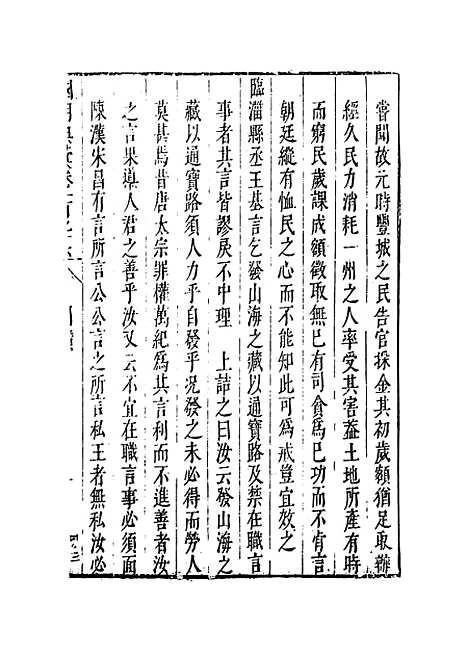 嘗聞故元時豐城之民告官採金其初歲額猶足取辦
經久民力消耗一州之人率受其害葢土地所產有時
而窮民歲課成額徵取無已有司貪為己功而不肯言
朝廷縱有恤民之心而不能知此可為戒豈宜效之
臨淄縣丞王基言乞發山海之藏以通寶路及禁在職言
事者其言皆謬戾不中理　上詰之曰汝云發山海之
藏以通寶路須人力乎自發乎况發之未必得而勞人
莫甚焉昔唐太宗罪權萬紀為其言利而不進善者汝
之言果導人君之善乎汝又云不宜在職言事必須面
陳漢宋昌有言所言公公言之所言私王者無私汝必